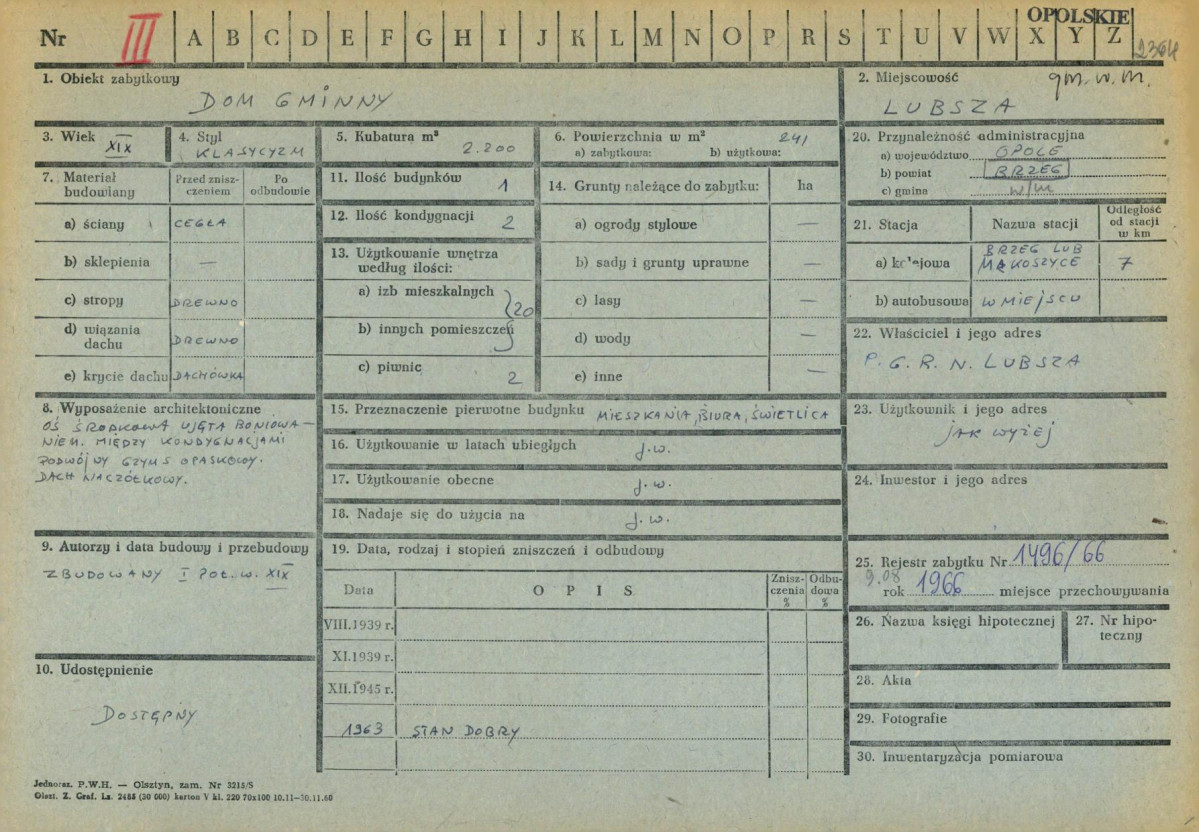 OPOLSKIE
Nr III A B C D E F G H I J K L M N O P R S T U V W X Y Z
2364
1. Obiekt zabytkowy
DOM GMINNY
2. Miejscowość gm. w. m.
LUBSZA
3. Wiek XIX
4. Styl KLASYCYZM
5. Kubatura m³ 2.200
6. Powierzchnia w m² 241
a) zabytkowa: b) użytkowa:
20. Przynależność administracyjna
a) województwo OPOLE
b) powiat BRZEG
c) gmina w/m
7. Materiał budowiany
Przed zniszczeniem
Po odbudowie
a) ściany CEGŁA
b) sklepienia —
c) stropy DREWNO
d) wiązania dachu DREWNO
e) krycie dachu DACHÓWKA
11. Ilość budynków 1
12. Ilość kondygnacji 2
13. Użytkowanie wnętrza
według ilości:
a) izb mieszkalnych
b) innych pomieszczeń
20
c) piwnic 2
14. Grunty należące do zabytku: ha
a) ogrody stylowe —
b) sady i grunty uprawne —
c) lasy —
d) wody —
e) inne —
21. Stacja Nazwa stacji Odległość
od stacji
w km
a) kolejowa BRZEG LUB
MĄKOSZYCE 7
b) autobusowa W MIEJSCU
22. Właściciel i jego adres
P. G. R. N. LUBSZA
8. Wyposażenie architektoniczne
OŚ ŚRODKOWA UJĘTA BONIOWA-
NIEM. MIĘDZY KONDYGNACJAMI
PODWÓJNY GZYMS OPASKOWY.
DACH NACZÓŁKOWY.
15. Przeznaczenie pierwotne budynku MIESZKANIA, BIURA, ŚWIETLICA
16. Użytkowanie w latach ubiegłych j.w.
17. Użytkowanie obecne j.w.
18. Nadaje się do użycia na j.w.
23. Użytkownik i jego adres
JAK WYŻEJ
24. Inwestor i jego adres
9. Autorzy i data budowy i przebudowy
ZBUDOWANY I POŁ. W. XIX
19. Data, rodzaj i stopień zniszczeń i odbudowy
Data OPIS Znisz-
czenia
% Odbu-
dowa
%
VIII.1939 r.
XI.1939 r.
XII.1945 r.
1963 STAN DOBRY
25. Rejestr zabytku Nr 1496/66
9.08
rok 1966 miejsce przechowywania
26. Nazwa księgi hipotecznej
27. Nr hipo-
teczny
10. Udostępnienie
DOSTĘPNY
28. Akta
29. Fotografie
30. Inwentaryzacja pomiarowa
Jednoraz. P.W.H. — Olsztyn, zam. Nr 3215/S
Olszt. Z. Graf. Ls. 2485 (30 000) karton V kl. 220 70x100 10.11—30.11.60